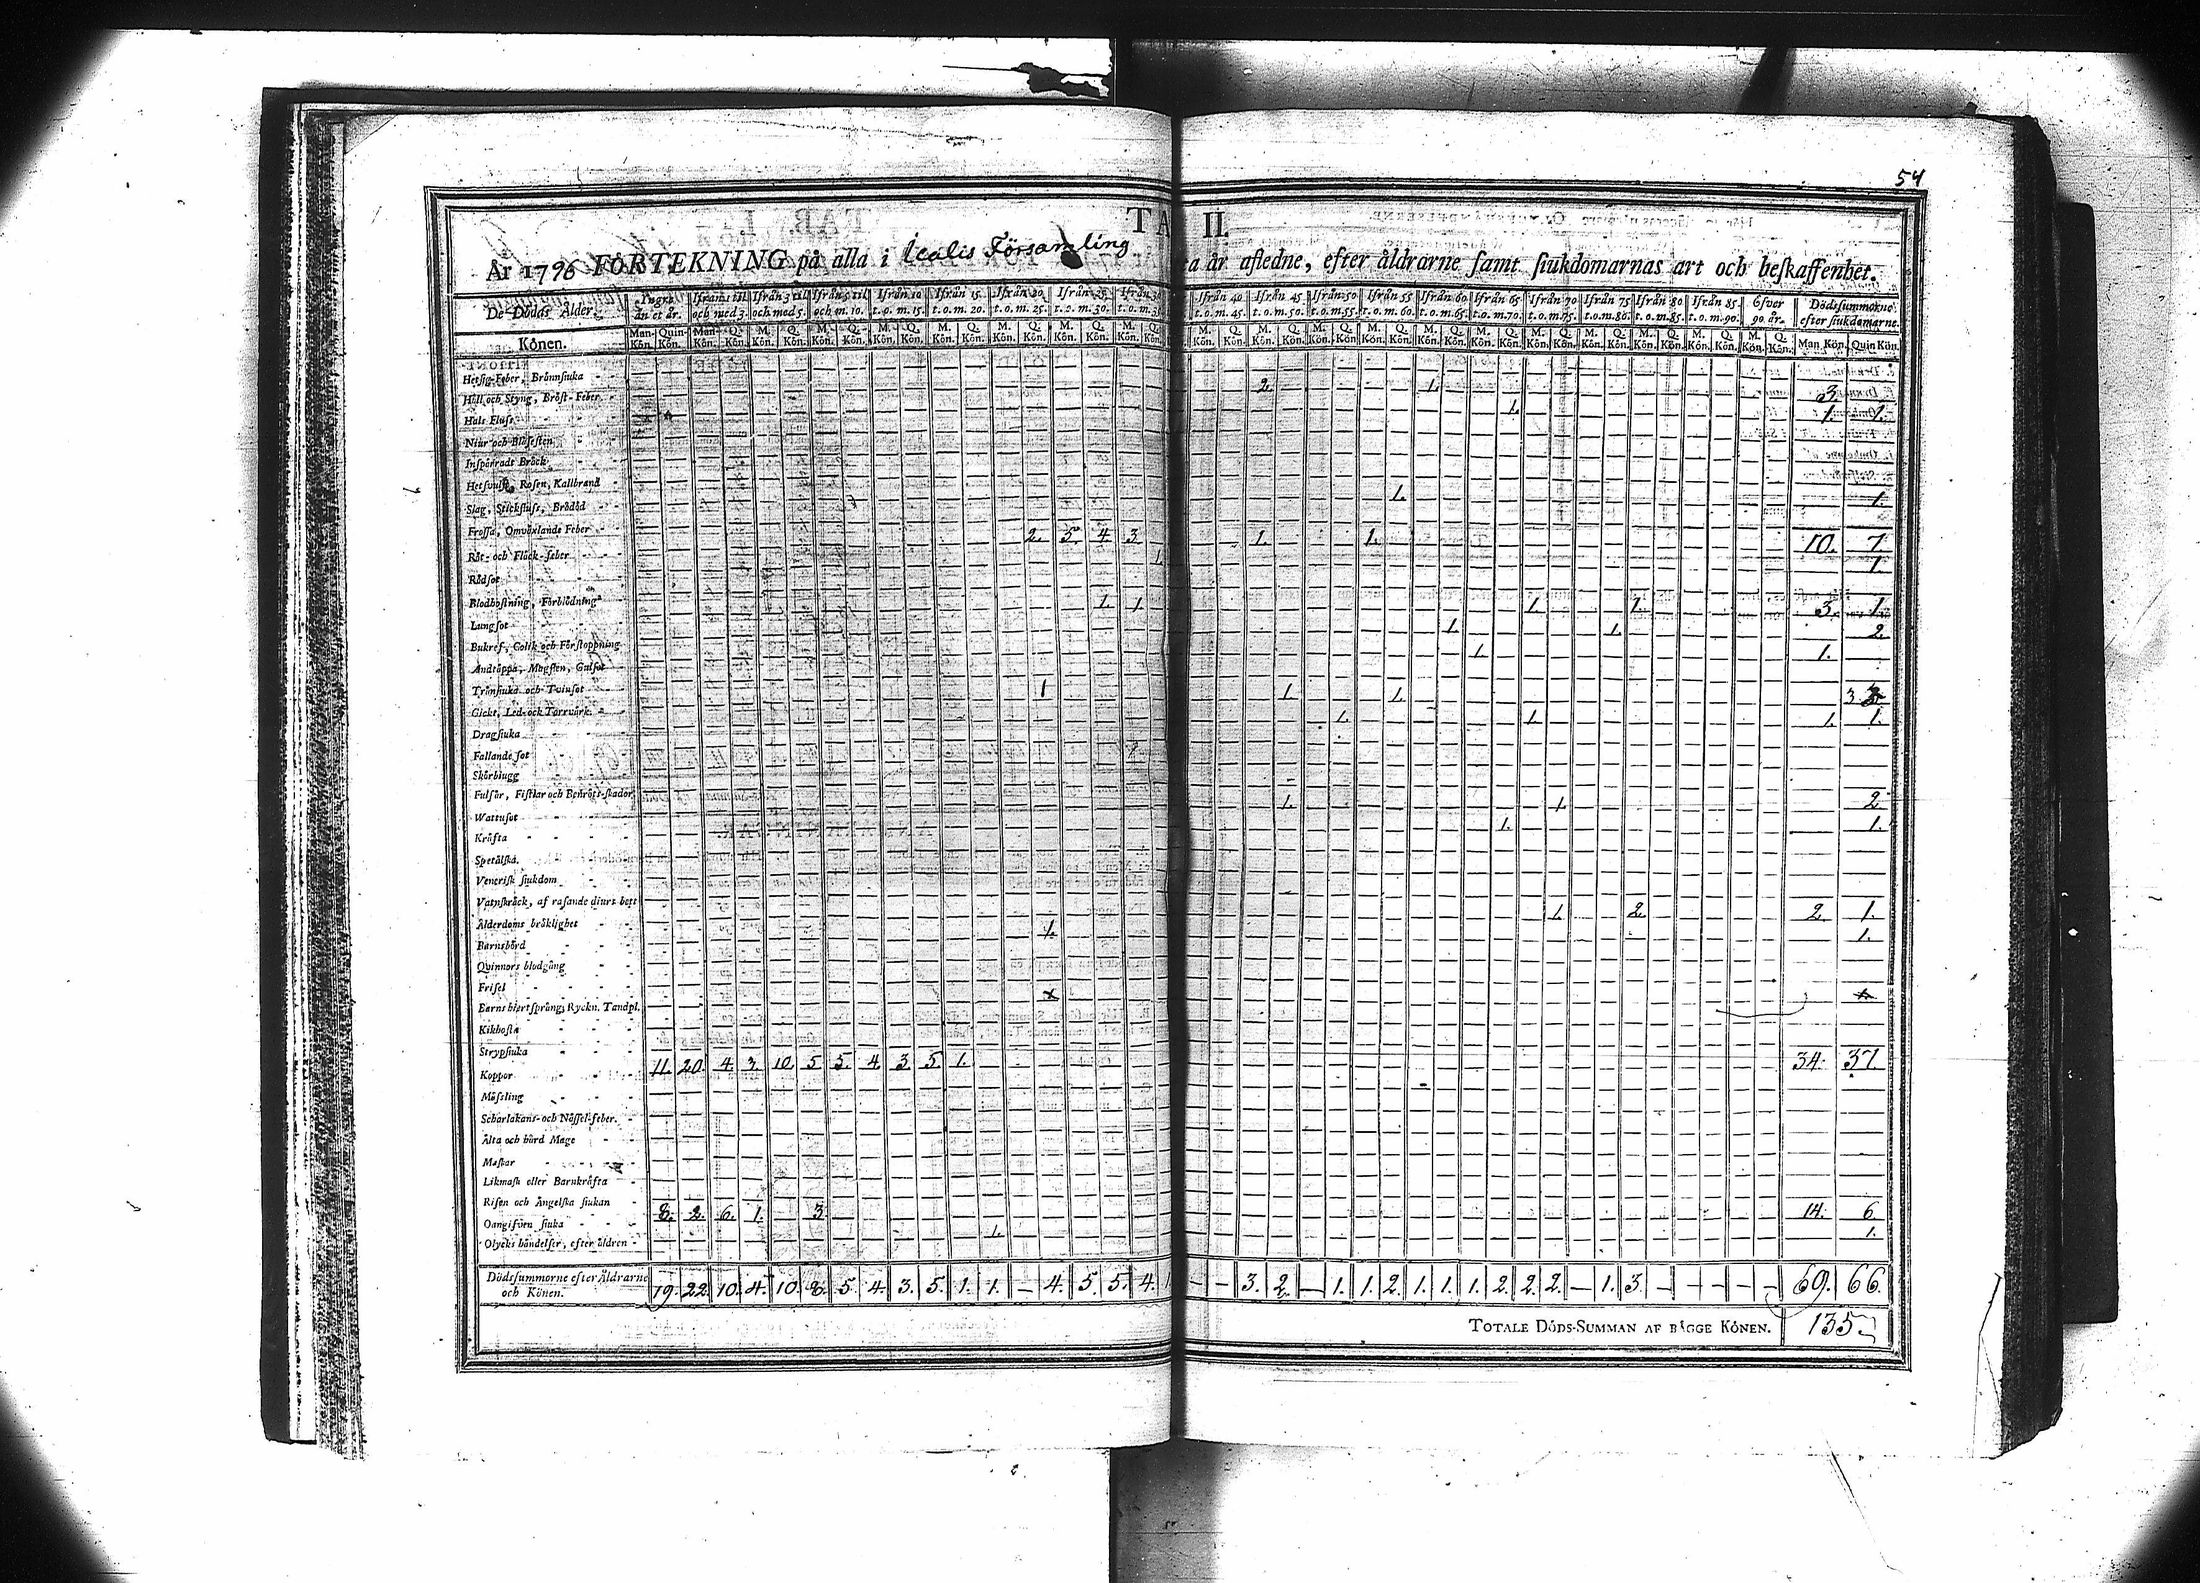 54
TA II.
År 1796 FÖRTEKNING på alla i Icalis Församling
ta år afledne, efter åldrarne samt siukdomarnas art och beskaffenhet.
De Dödas Ålder. Yngre än et år. Ifrån 1 til och med 3. Ifrån 3 til och med 5. Ifrån 5 til och m. 10. Ifrån 10 t. o. m. 15. Ifrån 15. t. o. m. 20. Ifrån 20. t. o. m. 25. Ifrån 25. t. o. m. 30. Ifrån 3 t. o. m. 3 Ifrån 40 t. o. m. 45. Ifrån 45 t. o. m. 50. Ifrån 50 t. o. m. 55. Ifrån 55 t. o. m. 60. Ifrån 60 t. o. m. 65. Ifrån 65 t. o. m. 70. Ifrån 70 t. o. m. 75. Ifrån 75 t. o. m. 80. Ifrån 80 t. o. m. 85. Ifrån 85. t. o. m. 90. Öfver 90 år. Dödssummorne efter siukdomarne.
Könen. Man-Kön. Quin-Kön. Man-Kön. Q. Kön. M. Kön. Q. Kön. M. Kön. Q. Kön. M. Kön. Q. Kön. M. Kön. Q. Kön. M. Kön. Q. Kön. M. Kön. Q. Kön. M. Kön. Q. Kön. M. Kön. Q. Kön. M. Kön. Q. Kön. M. Kön. Q. Kön. M. Kön. Q. Kön. M. Kön. Q. Kön. M. Kön. Q. Kön. M. Kön. Q. Kön. M. Kön. Q. Kön. M. Kön. Q. Kön. M. Kön. Q. Kön. M. Kön. Q. Kön. Man Kön. Quin Kön.
Hetsig-Feber, Brännsiuka
Håll och Styng, Bröst-Feber 2. 1. 3.
Hals Fluss 1. 1. 1.
Niur-och Blåsesten
Inspärradt Bråck
Hetsvulst, Rosen, Kallbrand
Slag, Stickfluss, Brådöd 1. 1.
Frossa, Omväxlande Feber
Röt- och Fläck-feber 2. 5. 4. 3. 1. 1. 10. 7.
Rödsot 1. 1.
Blodhostning, Förblödning
Lungsot 1. 1. 1. 1. 3. 1.
Bukref, Colik och Förstoppning 1. 1. 2.
Andtäppa, Magsten, Gulsot 1. 1.
Trånsiuka och Tvinsot 1 1. 1. 3.
Gickt, Led-ock Torrvärk 1. 1. 1. 1.
Dragsiuka
Fallande sot
Skörbiugg
Fulsår, Fistlar och Benröts-skador
Wattusot 1. 1. 2
Kräfta 1. 1.
Spetälska.
Venerisk siukdom
Vatnskräck, af rasande diurs bett
Ålderdoms bräklighet 1. 2. 2. 1.
Barnsbörd 1. 1.
Qvinnors blodgång
Frisel
Barns hiertsprång, Ryckn. Tandpl.
Kikhosta
Strypsiuka
Koppor 11. 20. 4. 3. 10. 5 5. 4. 3. 5. 1. 34. 37.
Mässling
Scharlakans-och Nässel-feber.
Älta och hård Mage
Maskar
Likmask eller Barnkräfta
Risen och Ängelska siukan
Oangifven siuka 8. 2. 6. 1. 3 14. 6
Olycks händelser, efter åldren 1. 1.
Dödssummorne efter Åldrarne och Könen. 19. 22. 10. 4. 10. 8. 5. 4. 3. 5. 1. 1. — 4. 5. 5. 4. 1 — — 3. 2. — 1. 1. 2. 1. 1. 1. 2. 2. 2. — 1. 3. — — — — — 69. 66.
TOTALE DÖDS-SUMMAN AF BÄGGE KÖNEN. 135.